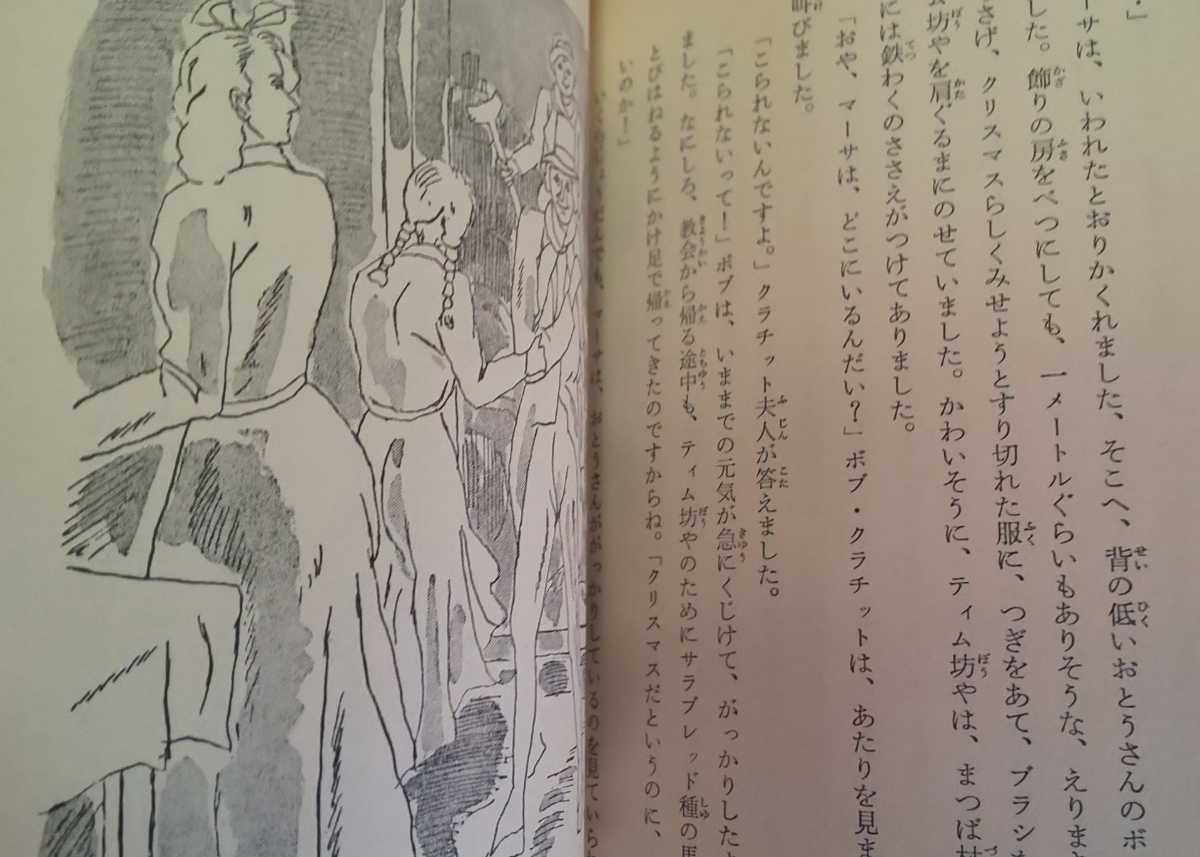 ・」
ーサは、いわれたとおりかくれました、そこへ、背の低いおとうさんのボ
した。飾りの房をべつにしても、一メートルぐらいもありそうな、えりま
さげ、クリスマスらしくみせようとすり切れた服に、つぎをあて、ブラシ
坊やを肩ぐるまにのせていました。かわいそうに、ティム坊やは、まつば
には鉄わくのささえがつけてありました。
「おや、マーサは、どこにいるんだい？」ボブ・クラチットは、あたりを見ま
叫びました。
「こられないんですよ。」クラチット夫人が答えました。
「こられないって！」ボブは、いままでの元気が急にくじけて、がっかりした
ました。なにしろ、教会から帰る途中も、ティム坊やのためにサラブレッド種の馬
とびはねるようにかけ足で帰ってきたのですからね。「クリスマスだというのに、
いのか！」
マーサは、おとうさんががっかりしているのを見ていられ